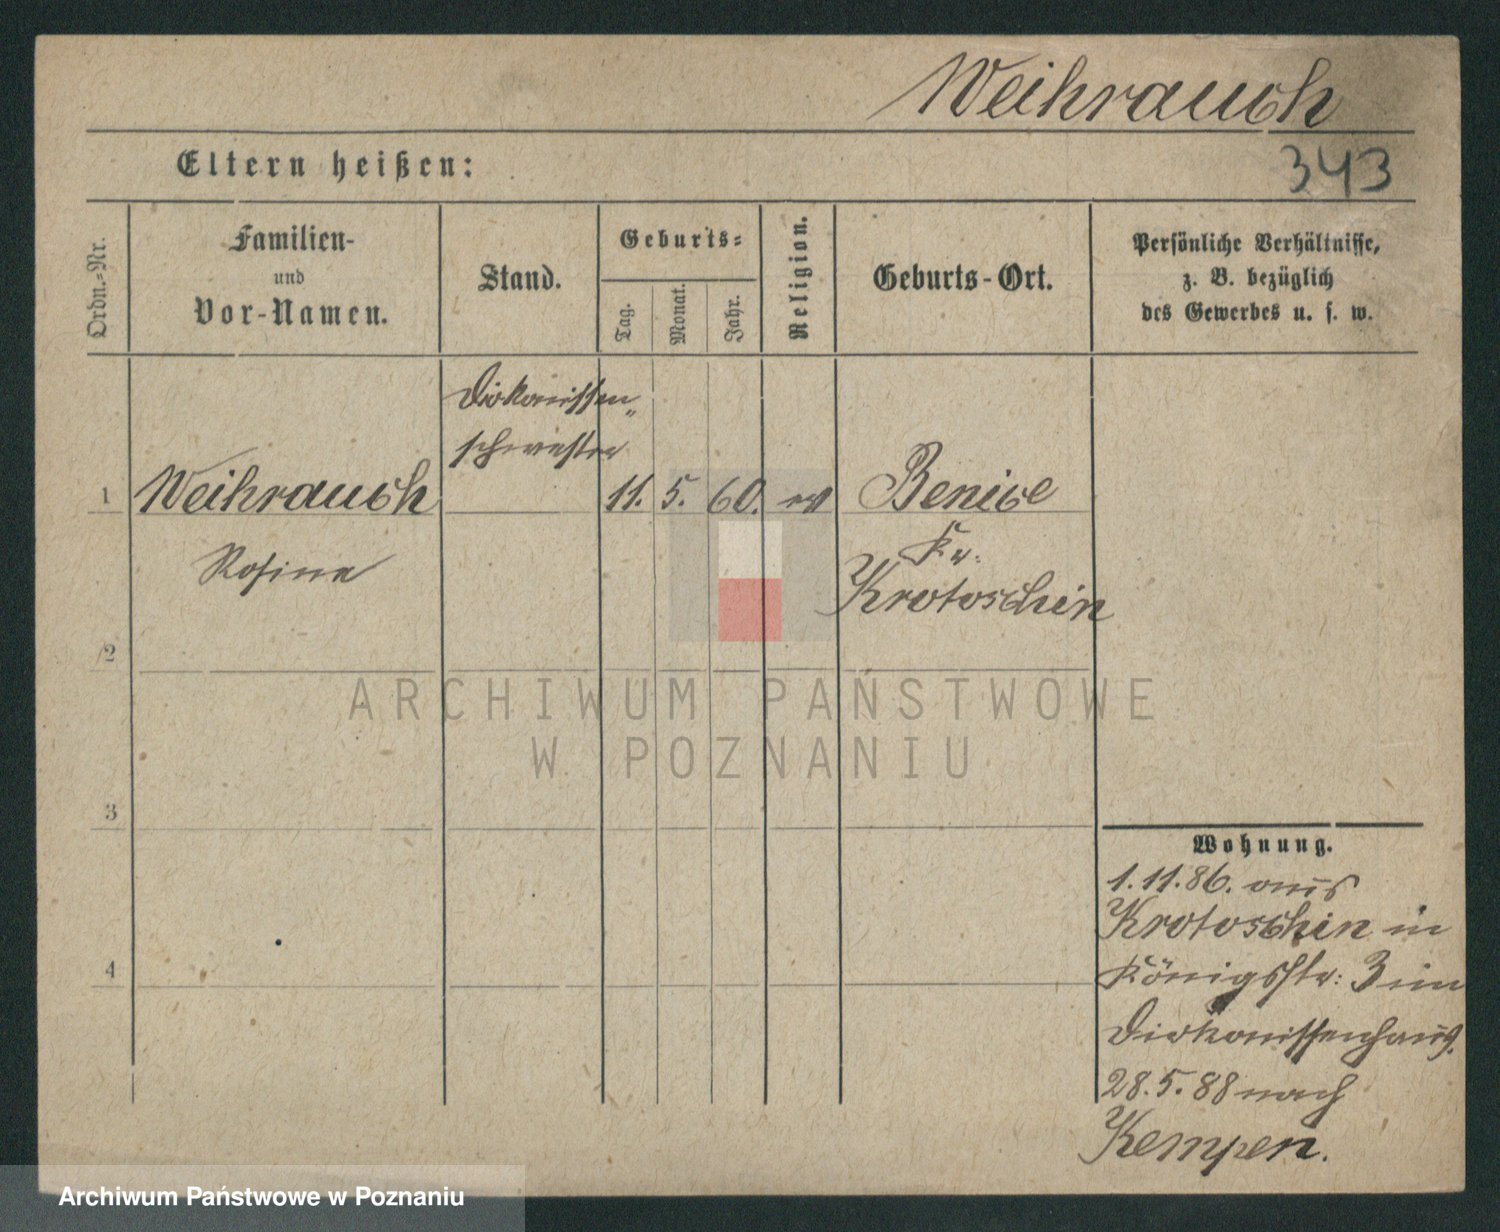 Weihrauch
Eltern heißen:
343
Ordn.-Nr.
Familien-
und
Vor-Namen.
Stand.
Geburts-
Tag.
Monat.
Jahr.
Religion.
Geburts-Ort.
Persönliche Verhältnisse,
z. B. bezüglich
des Gewerbes u. s. w.
Diakonissen
schwester
1 Weihrauch 11. 5. 60. ev Benice
Rosine
Kr.
Krotoschin
2
ARCHIWUM PAŃSTWOWE
W POZNANIU
3
Wohnung.
1.11.86. aus
Krotoschin in
Königsstr: 3 im
Diakonissenhaus.
4
28.5.88 nach
Kempen.
Archiwum Państwowe w Poznaniu